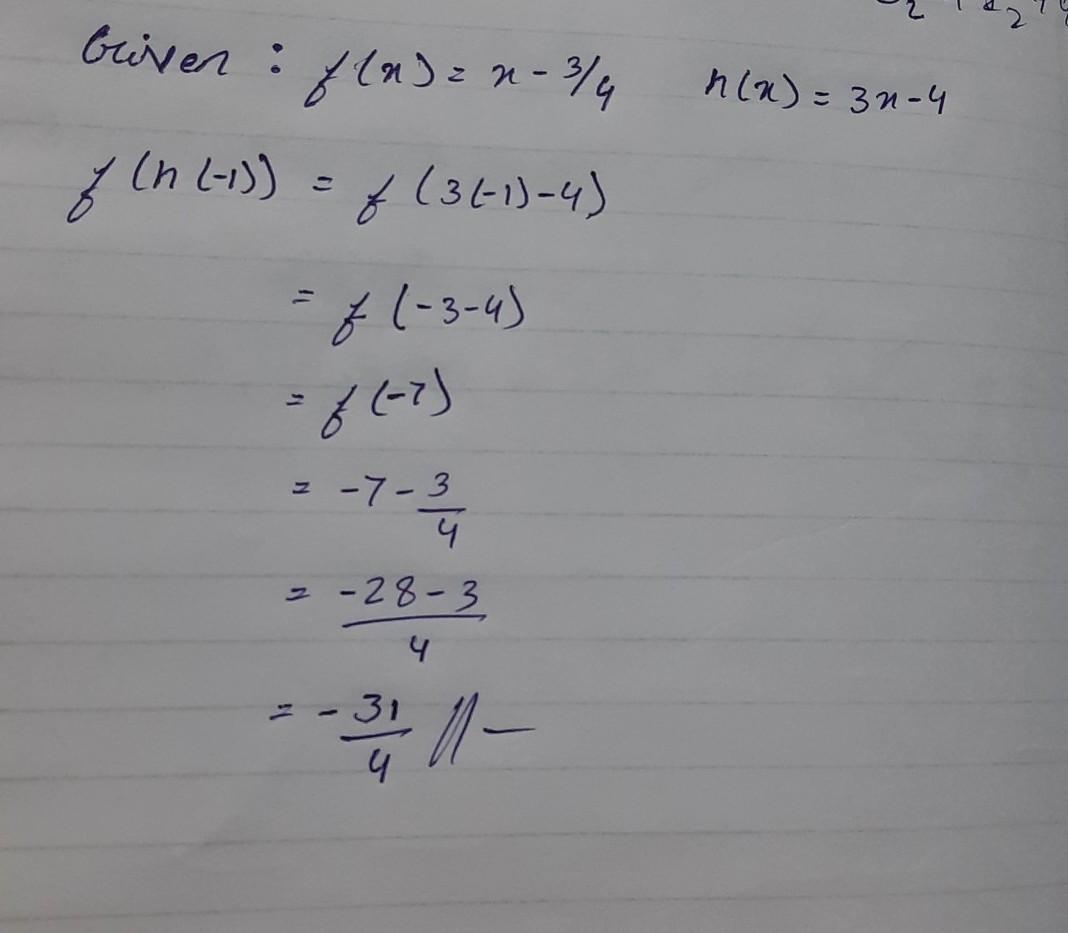 Given : f(x) = x - 3/4 h(x) = 3x-4
f(h(-1)) = f(3(-1)-4)
= f(-3-4)
= f(-7)
= -7 - 3/4
= (-28-3)/4
= -31/4 //-